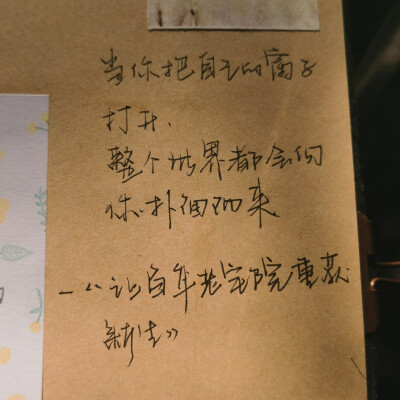 当你把自己的窗子
打开，
整个世界都会向
你扑面而来。
—《让百年老宅院重获
新生》